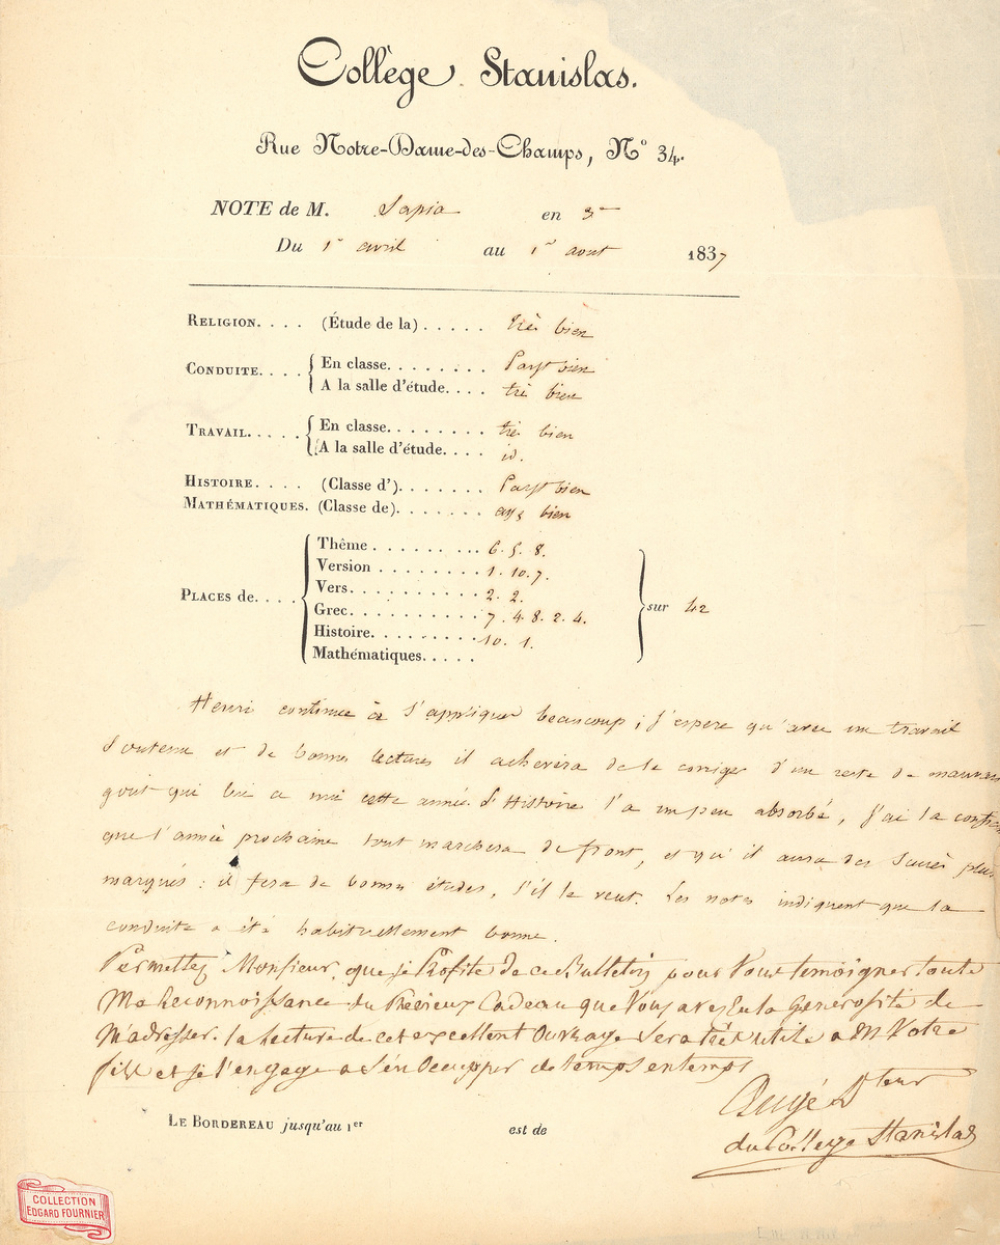 Collège Stanislas.
Rue Notre-Dame-des-Champs, N° 34.
NOTE de M. Sapia en 3me
Du 1er avril au 1er aout 1837
RELIGION. . . . (Étude de la) . . . . . très bien
CONDUITE. . . . En classe. . . . . . . . Parft bien
A la salle d'étude. . . . très bien
TRAVAIL. . . . . En classe. . . . . . . . très bien
A la salle d'étude. . . . id.
HISTOIRE. . . . (Classe d'). . . . . . . Parft bien
MATHÉMATIQUES. (Classe de). . . . . . . assez bien
Thême . . . . . . . . . . 6. 5. 8.
Version . . . . . . . . . 1. 10. 7.
Vers. . . . . . . . . . . 2. 2.
PLACES de. . . . Grec. . . . . . . . . . . 7. 4. 8. 2. 4. sur 42
Histoire. . . . . . . . . 10. 1.
Mathématiques. . . . .
Henri continue à s'appliquer beaucoup ; j'espere qu'avec un travail
soutenu et de bonnes lectures il achevera de se corriger d'un reste de mauvais
gout qui lui a nui cette année. L'Histoire l'a un peu absorbé, j'ai la
que l'année prochaine tout marchera de front, et qu'il aura des succès plus
marqués : il fera de bonnes études, s'il le veut. Les notes indiquent que la
conduite a été habituellement bonne.
Permettez Monsieur, que je Profite de ce Bulletin pour Vous temoigner toute
Ma Reconnoissance du Précieux Cadeau que Vous avez Eu la Générosité de
M'adresser. la Lecture de cet excellent Ouvrage Sera très utile a Mr Votre
fils et je l'engage a S'en Occupper de temps en temps
Augé Dteur
du College Stanislas
LE BORDEREAU jusqu'au 1er est de
COLLECTION
EDGARD FOURNIER